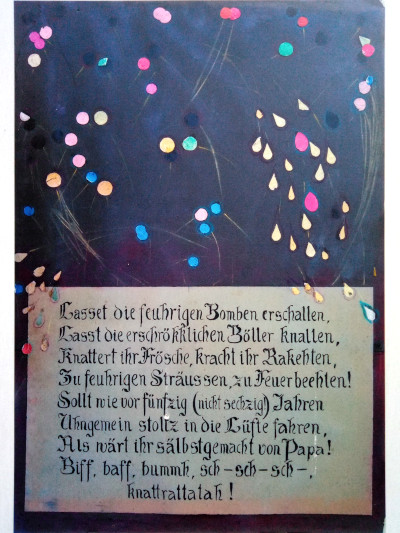 Lasset die feuhrigen Bomben erschallen,
Lasst die erschrökklichen Böller knallen,
Knattert ihr Frösche, kracht ihr Rakehten,
Zu feuhrigen Sträussen, zu Feuerbeehten!
Sollt wie vor fünfzig (nicht sechzig) Jahren
Uhngemein stoltz in die Lüfte fahren,
Als wärt ihr sälbstgemacht von Papa!
Biff, baff, bummh, sch-sch-sch-,
knattrattatah!